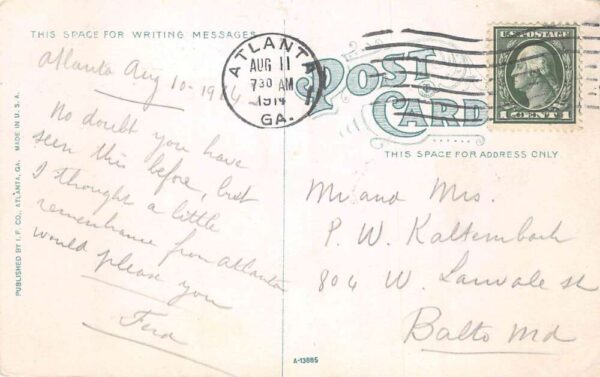 THIS SPACE FOR WRITING MESSAGES
Atlanta Aug 10-1914
No doubt you have
seen this before, but
I thought a little
remembrance from Atlanta
would please you
Ferd
PUBLISHED BY I. F. CO., ATLANTA, GA. MADE IN U.S.A.
ATLANTA
AUG 11
730 AM
1914
GA.
POST
CARD
U.S. POSTAGE
1 CENT 1
THIS SPACE FOR ADDRESS ONLY
Mr and Mrs.
P. W. Kaltenbach
804 W. Lanvale st
Balto Md
A-13885